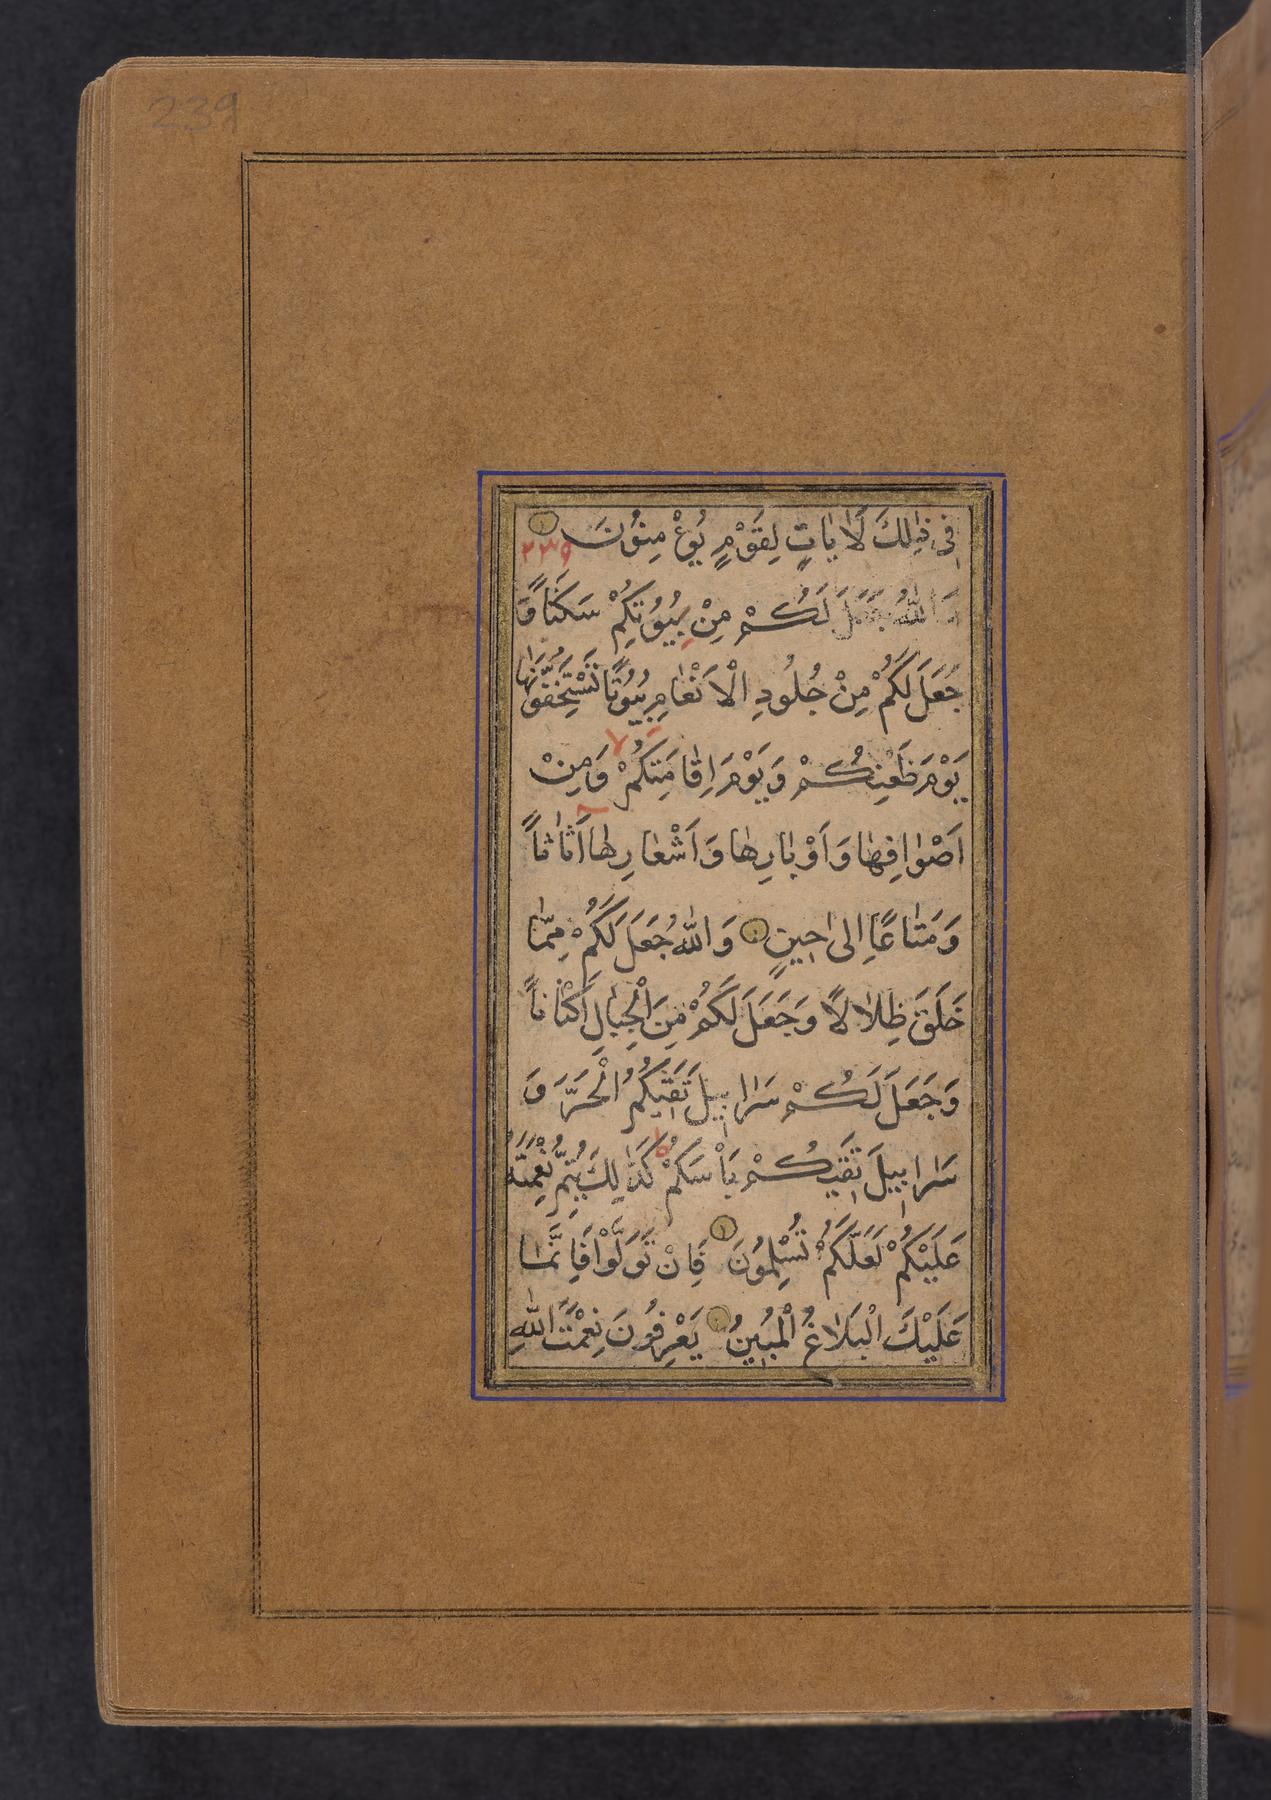 239
فِي ذٰلِكَ لَاٰيٰاتٍ لِقَوْمٍ يُؤْمِنُونَ
٢٣٩
وَاللّٰهُ جَعَلَ لَكُمْ مِنْ بُيُوتِكُمْ سَكَنًا وَ
جَعَلَ لَكُمْ مِنْ جُلُودِ الْاَنْعٰامِ بُيُوتًا تَسْتَخِفُّونَهٰا
يَوْمَ ظَعْنِكُمْ وَيَوْمَ اِقٰامَتِكُمْ وَمِنْ
اَصْوٰافِهٰا وَاَوْبٰارِهٰا وَاَشْعٰارِهٰا اَثٰاثًا
وَمَتٰاعًا اِلىٰ حِينٍ وَاللّٰهُ جَعَلَ لَكُمْ مِمّٰا
خَلَقَ ظِلٰالًا وَجَعَلَ لَكُمْ مِنَ الْجِبٰالِ اَكْنٰانًا
وَجَعَلَ لَكُمْ سَرٰابِيلَ تَقِيكُمُ الْحَرَّ وَ
سَرٰابِيلَ تَقِيكُمْ بَأْسَكُمْ كَذٰلِكَ يُتِمُّ نِعْمَتَهُ
عَلَيْكُمْ لَعَلَّكُمْ تُسْلِمُونَ فَاِنْ تَوَلَّوْا فَاِنَّمٰا
عَلَيْكَ الْبَلٰاغُ الْمُبِينُ يَعْرِفُونَ نِعْمَتَ اللّٰهِ